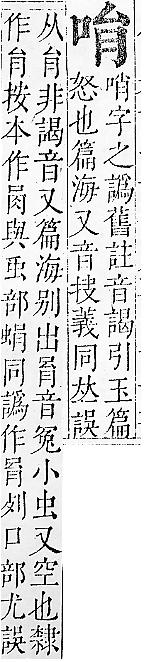 哨字之譌舊註音謁引玉篇
怒也篇海又音捜義同𠀤誤
从肙非謁音又篇海別出肙音冤小虫又空也隸
作肙按本作肙與虫部蜎同譌作肙列口部尤誤